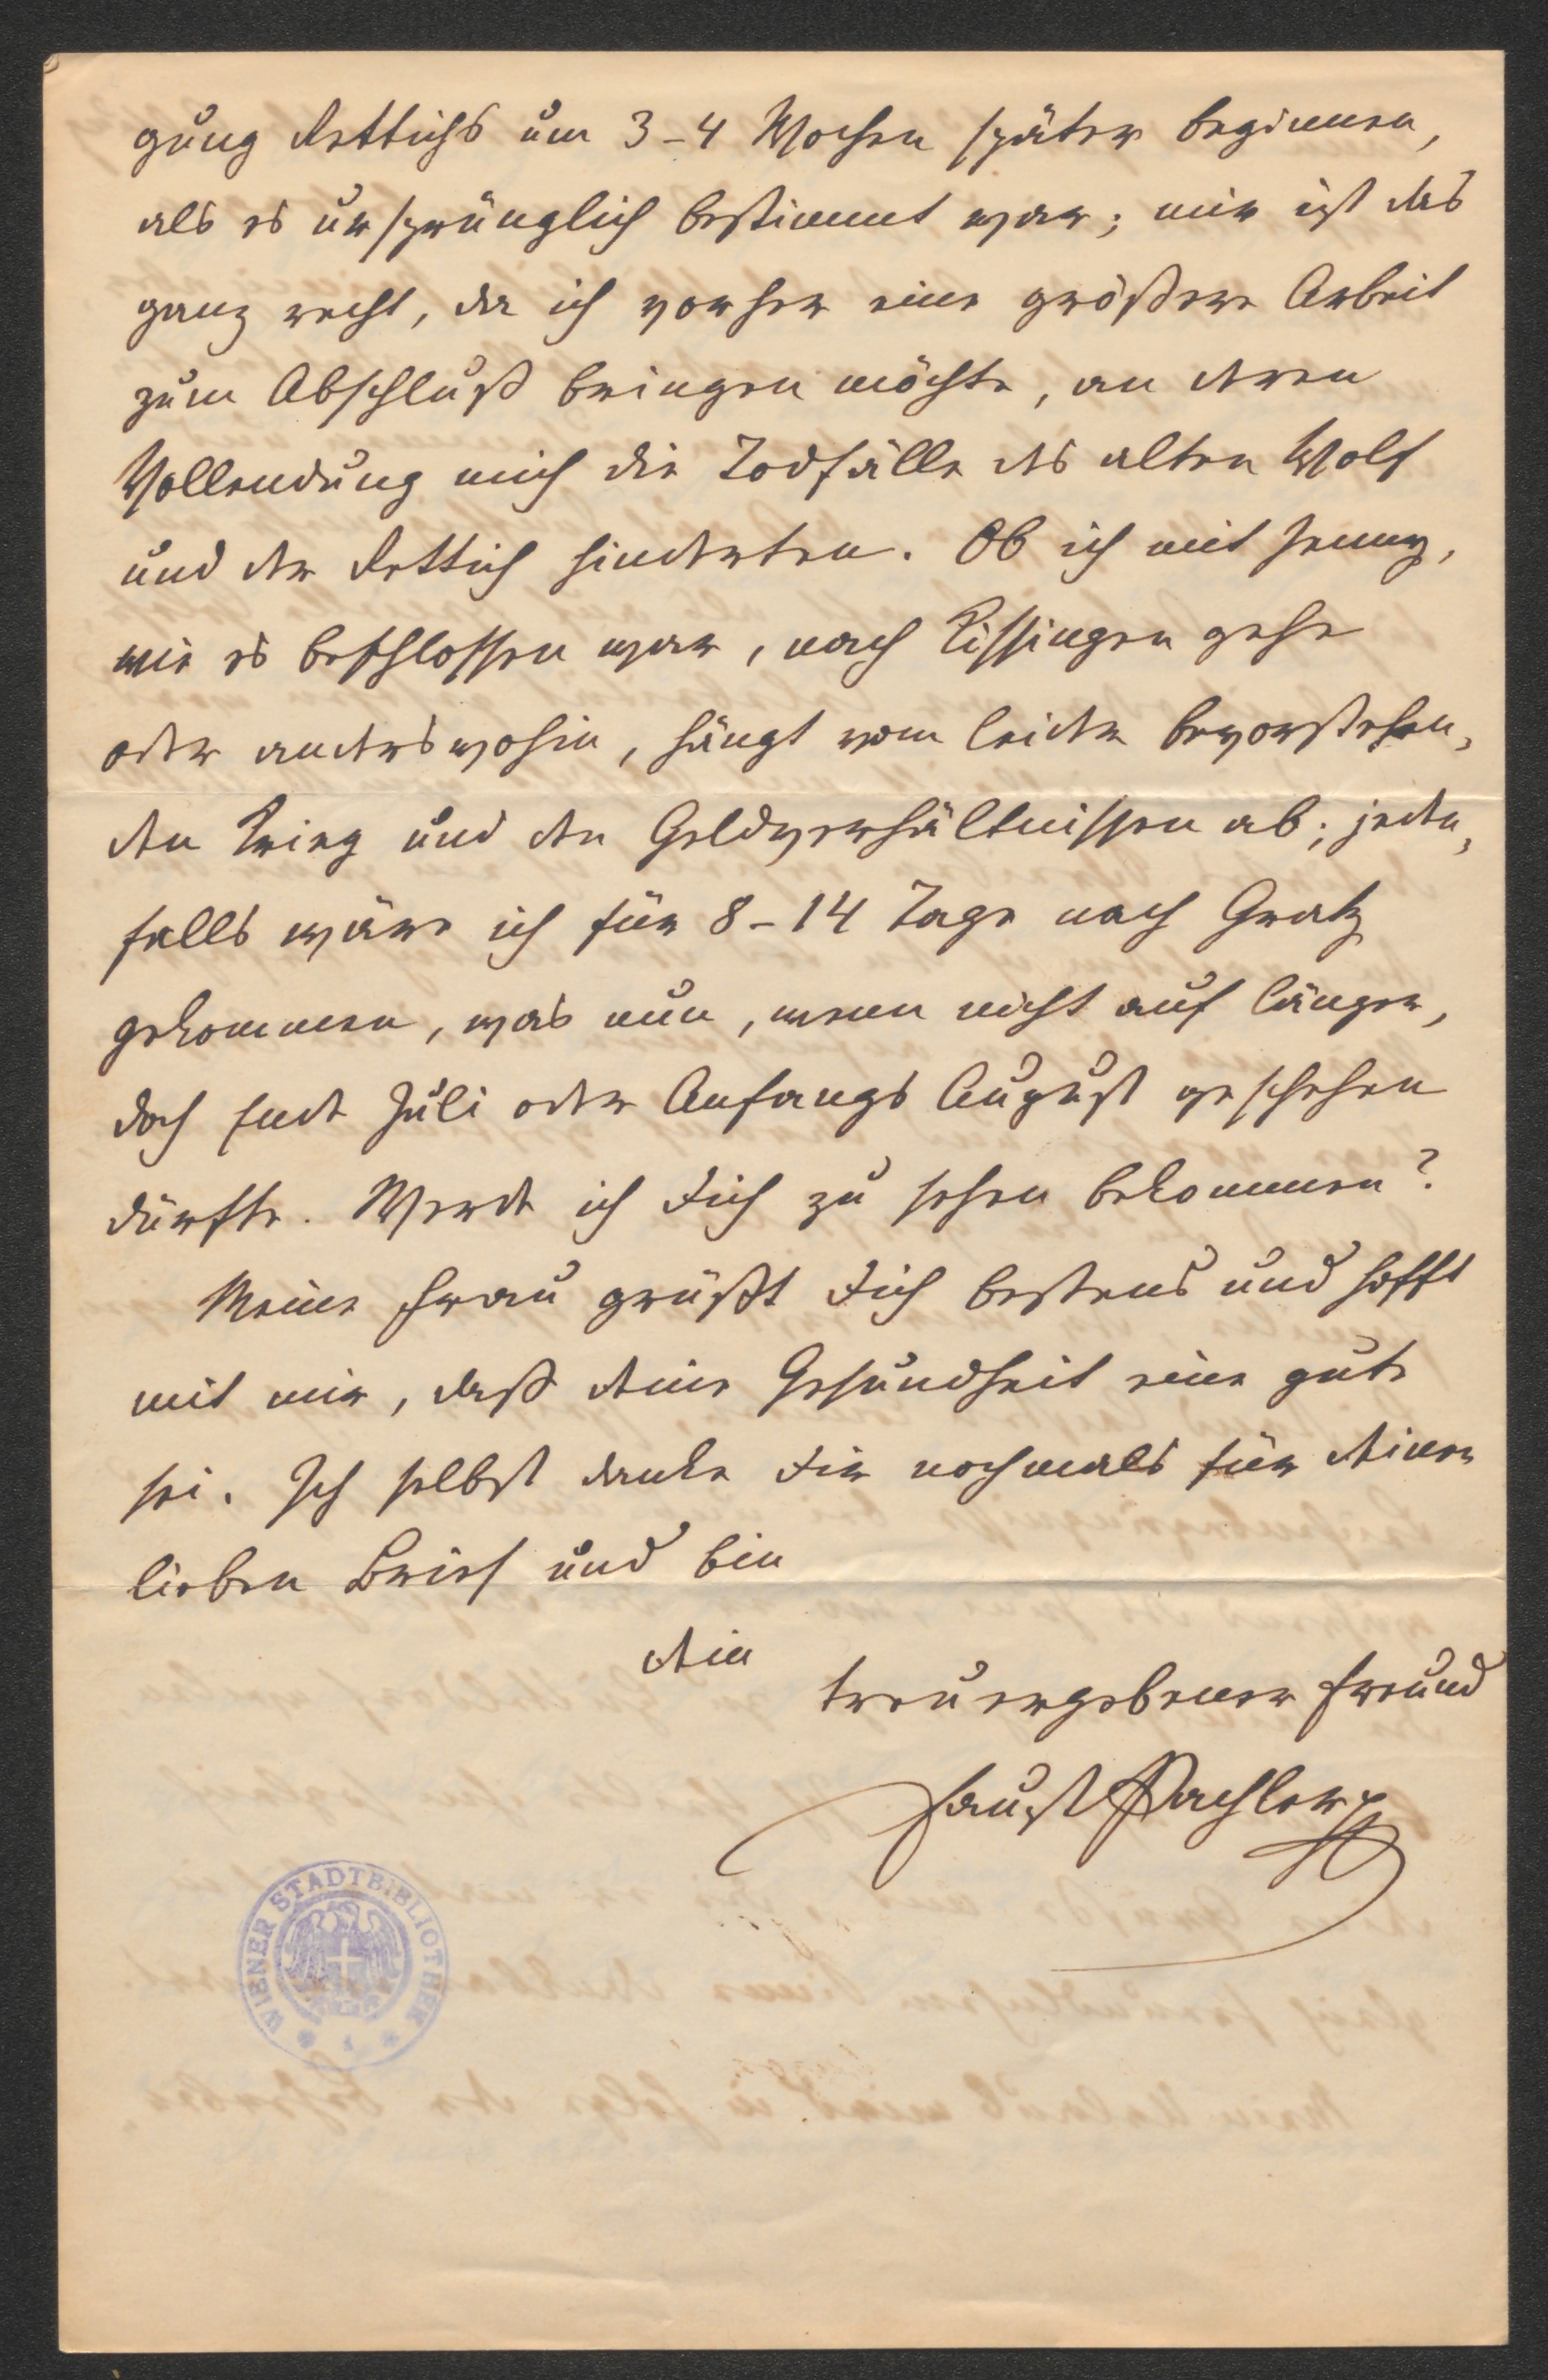 gung Rettichs um 3–4 Wochen später beginnen,
als es ursprünglich bestimmt war; mir ist das
ganz recht, da ich vorher eine größere Arbeit
zum Abschluß bringen möchte, an deren
Vollendung mich die Todfälle des alten Wolf
und der Rettich hinderten. Ob ich mit Jenny,
wie es beschlossen war, nach Kissingen gehe
oder anderswohin, hängt vom leider bevorstehen-
den Krieg und den Geldverhältnissen ab; jeden-
falls wäre ich für 8–14 Tage nach Gratz
gekommen, was nun, wenn nicht auf länger,
doch Ende Juli oder Anfangs August geschehen
dürfte. Werde ich Dich zu sehen bekommen?
Meine Frau grüßt Dich bestens und hofft
mit mir, daß deine Gesundheit eine gute
sei. Ich selbst danke Dir nochmals für deinen
lieben Brief und bin
dein
treuergebener Freund
Faust Pachler
WIENER STADTBIBLIOTHEK